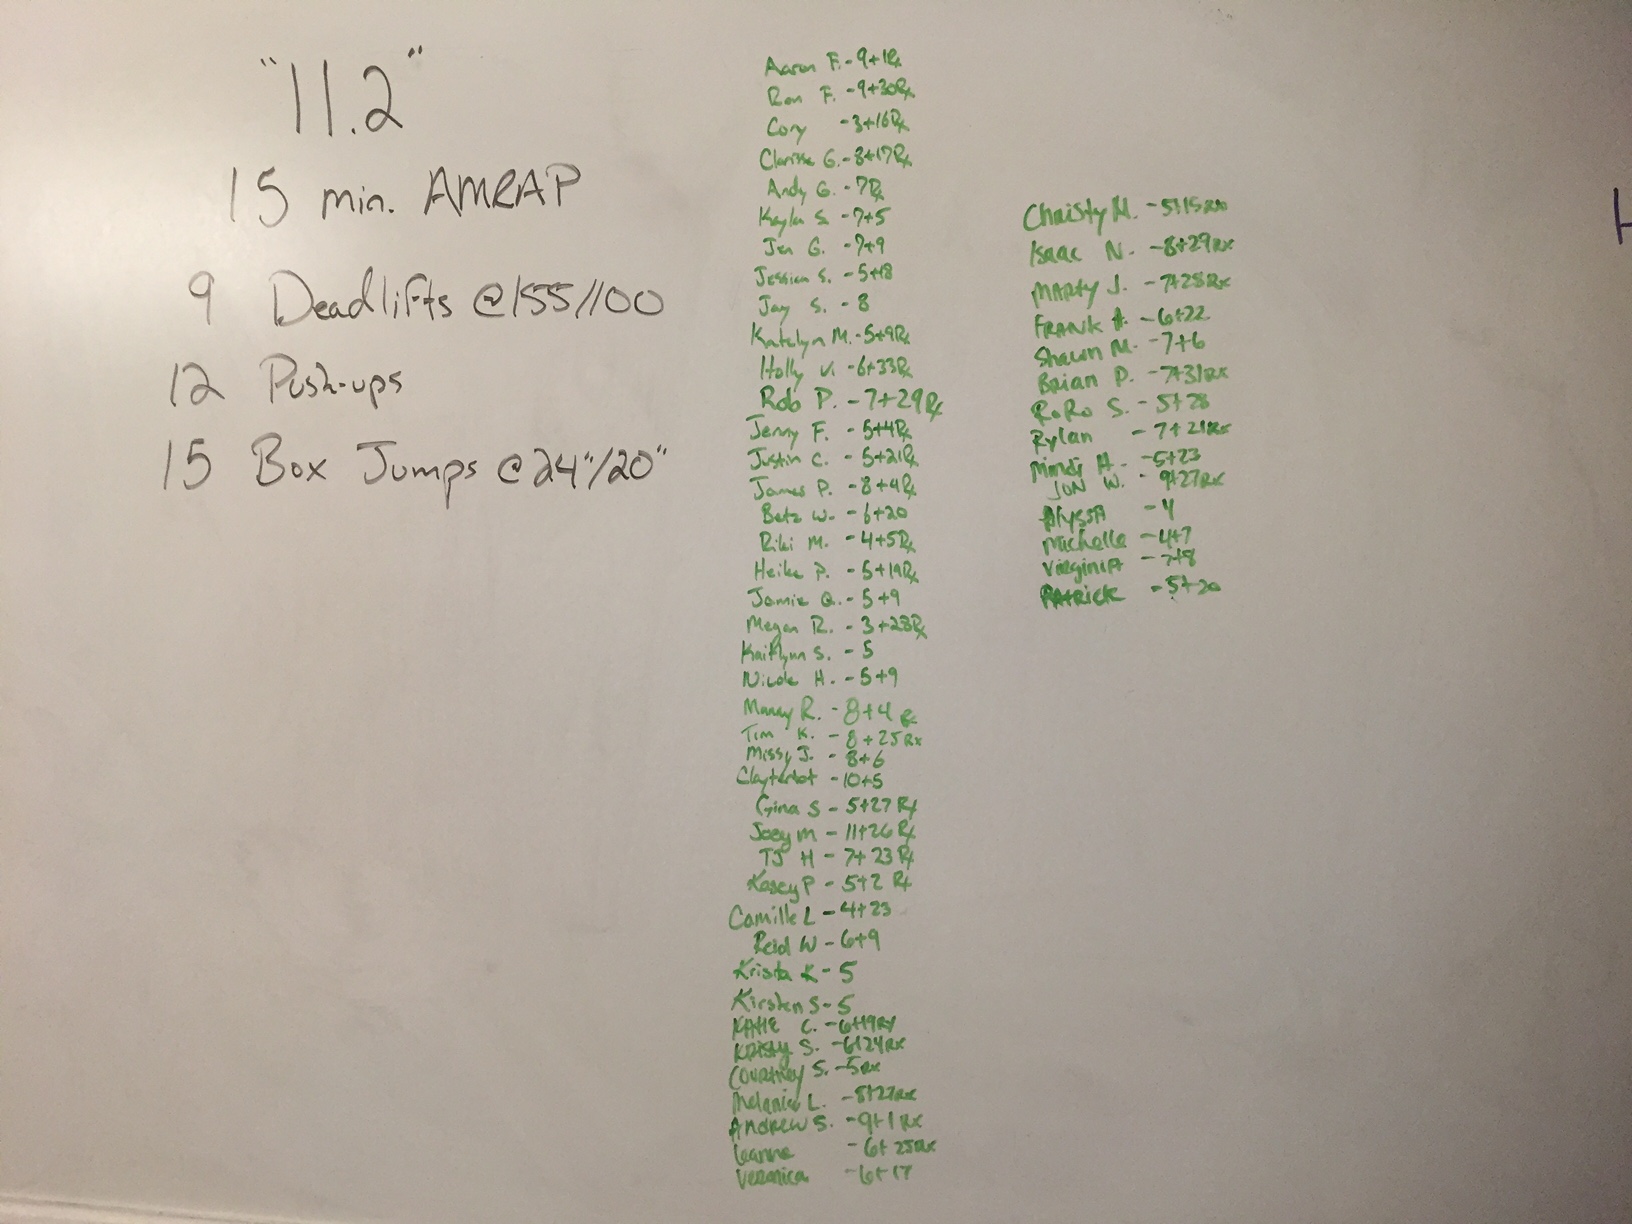 "11.2"
15 min. AMRAP
9 Deadlifts @155/100
12 Push-ups
15 Box Jumps @24"/20"
Aaron F. - 9+1Rx
Ron F. - 9+30Rx
Cory - 3+16Rx
Clarisse G. - 8+17Rx
Andy G. - 7Rx
Kayla S. - 7+5
Jen G. - 7+9
Jessica S. - 5+18
Jay S. - 8
Katelyn M. - 5+9Rx
Holly V. - 6+33Rx
Rob P. - 7+29Rx
Jenny F. - 5+4Rx
Justin C. - 5+21Rx
James P. - 8+4Rx
Betz W. - 6+20
Riki M. - 4+5Rx
Heike P. - 5+19Rx
Jamie Q. - 5+9
Megan R. - 3+23Rx
Kaitlynn S. - 5
Nicole H. - 5+9
Manny R. - 8+4 Rx
Tim K. - 8+25Rx
Missy J. - 8+6
Clayterbot - 10+5
Gina S - 5+27 Rx
Joey M - 11+26 Rx
TJ H - 7+23 Rx
Kasey P - 5+2 Rx
Camille L - 4+23
Reid W - 6+9
Krista K - 5
Kirsten S - 5
Katie C. - 6+19Rx
Kristy S. - 6+24Rx
Courtney S. - 5Rx
Melanie L. - 8+27Rx
Andrew S. - 9+1Rx
Leanne - 6+25Rx
Veronica - 6+17
Christy M. - 5+15Rx
Isaac N. - 8+29Rx
Marty J. - 7+28Rx
FRANK A. - 6+22
Shawn M. - 7+6
Brian P. - 7+31Rx
RoRo S. - 5+28
Rylan - 7+21Rx
Mindi H. - 5+23
JON W. - 9+27Rx
Alyssa - 4
Michelle - 4+7
Virginia - 7+8
PATRICK - 5+20